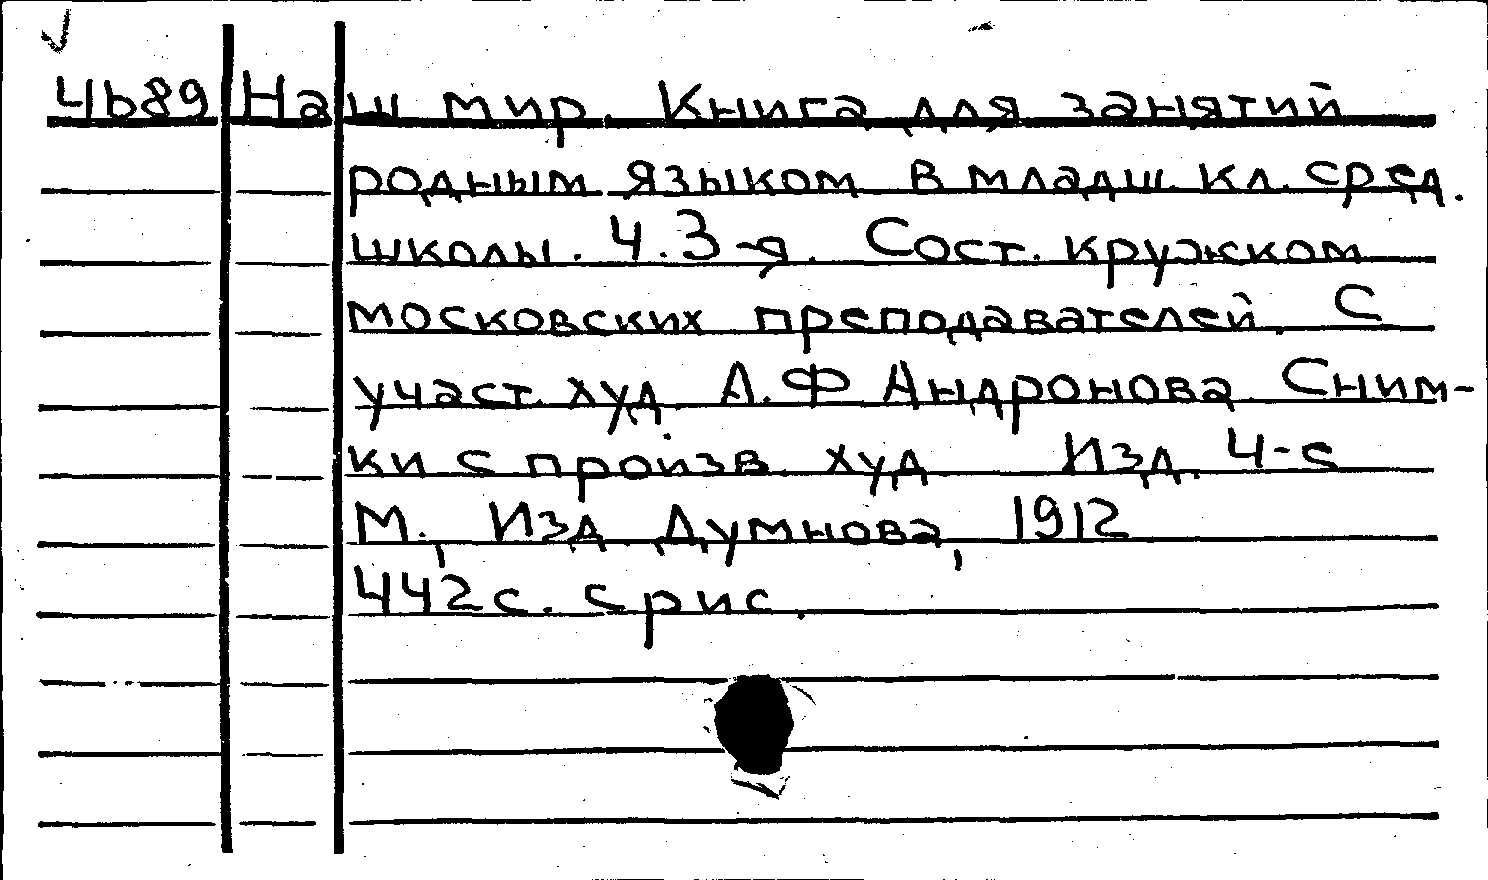 4б89 Наш мир. Книга для занятий
родным языком в младш. кл. сред.
школы. Ч.3-я. Сост. кружком
московских преподавателей. С
участ. худ. А.Ф Андронова. Сним-
ки с произв. худ Изд. 4-е
М., Изд Думнова, 1912
442с. с рис.